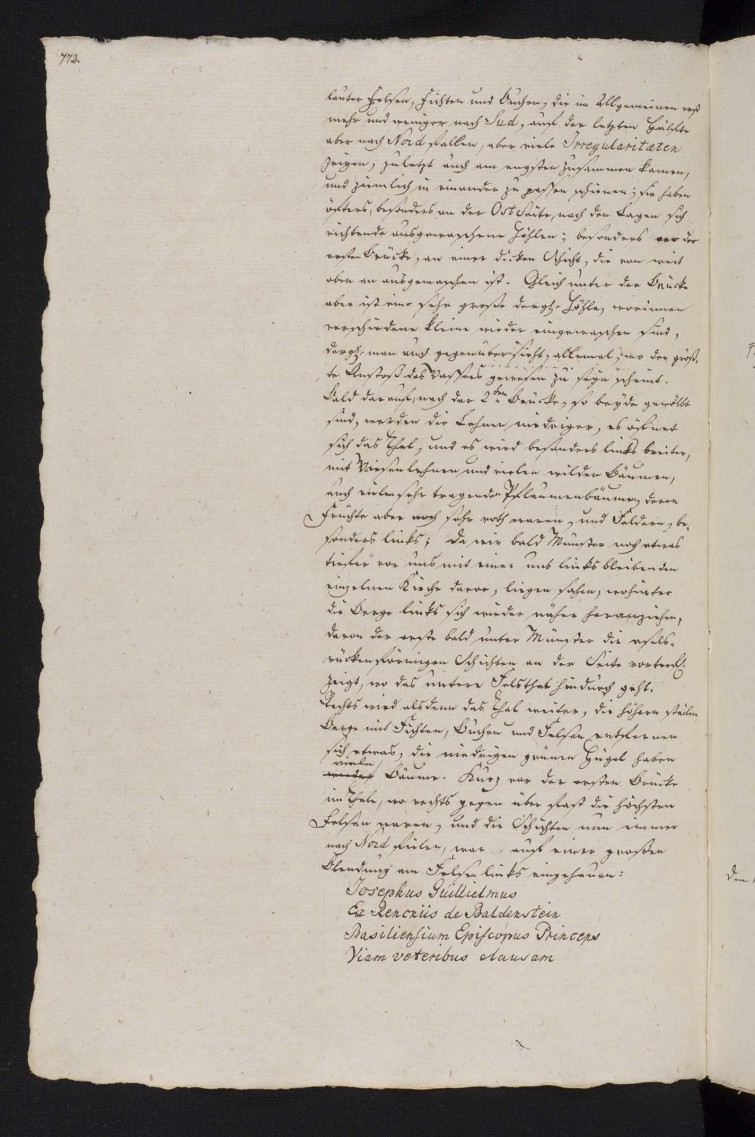 772.
lauter Felsen, Fichten und Buchen, die im Allgemeinen erst
mehr und weniger nach Sud, auf der letzten Hälfte
aber nach Nord fallen, aber viele Irregularitaten
zeigen, zuletzt auch am engsten zusammen kamen,
und ziemlich in einander zu passen schienen; sie haben
öfters, besonders an der Ost Seite, nach den Lagen sich
richtende ausgewaschene Höhlen; besonders vor der
ersten Brücke, an einer dicken Schicht, die von weit
oben an ausgewaschen ist. Gleich unter der Brücke
aber ist eine sehr große dergl. Höhle, worinnen
verschiedene kleine wieder eingewaschen sind,
dergl. man auch gegenüber sieht, allemal wo der größ-
te Anstoß des Wassers gewesen zu seyn scheint.
Bald darauf, nach der 2ten Brücke, so beyde gewölbt
sind, werden die Lehnen niedriger, es öfnet
sich das Thal, und es wird besonders links breiter,
mit Wiesenlehnen und vielen wilden Bäumen,
auch vielen sehr tragenden Pflaumenbäumen, deren
Früchte aber noch sehr roth waren, und Feldern, be-
sonders links; Da wir bald Münster noch etwas
tiefer vor uns mit einer uns links bleibenden
einzelnen Kirche davor, liegen sahen, wohinter
die Berge links sich wieder näher heranziehen,
davon der erste bald unter Münster die esels-
rückenförmigen Schichten an der Seite vortrefl.
zeigt, wo das untere Felsthal hindurch geht.
Rechts wird alsdenn das Thal weiter, die höhern steilen
Berge mit Fichten, Buchen und Felsen entfernen
sich etwas, die niedrigen grünen Hügel haben
viele
Bäume. Kurz vor der ersten Brücke
im Thale, wo rechts gegen über fast die höchsten
Felsen waren, und die Schichten nun immer
nach Nord fielen, war auf einer großen
Blendung am Felsen links eingehauen:
Josephus Guilielmus
Ex Rencniis de Baldenstein
Basiliensium Episcopus Princeps
Viam veteribus clausam